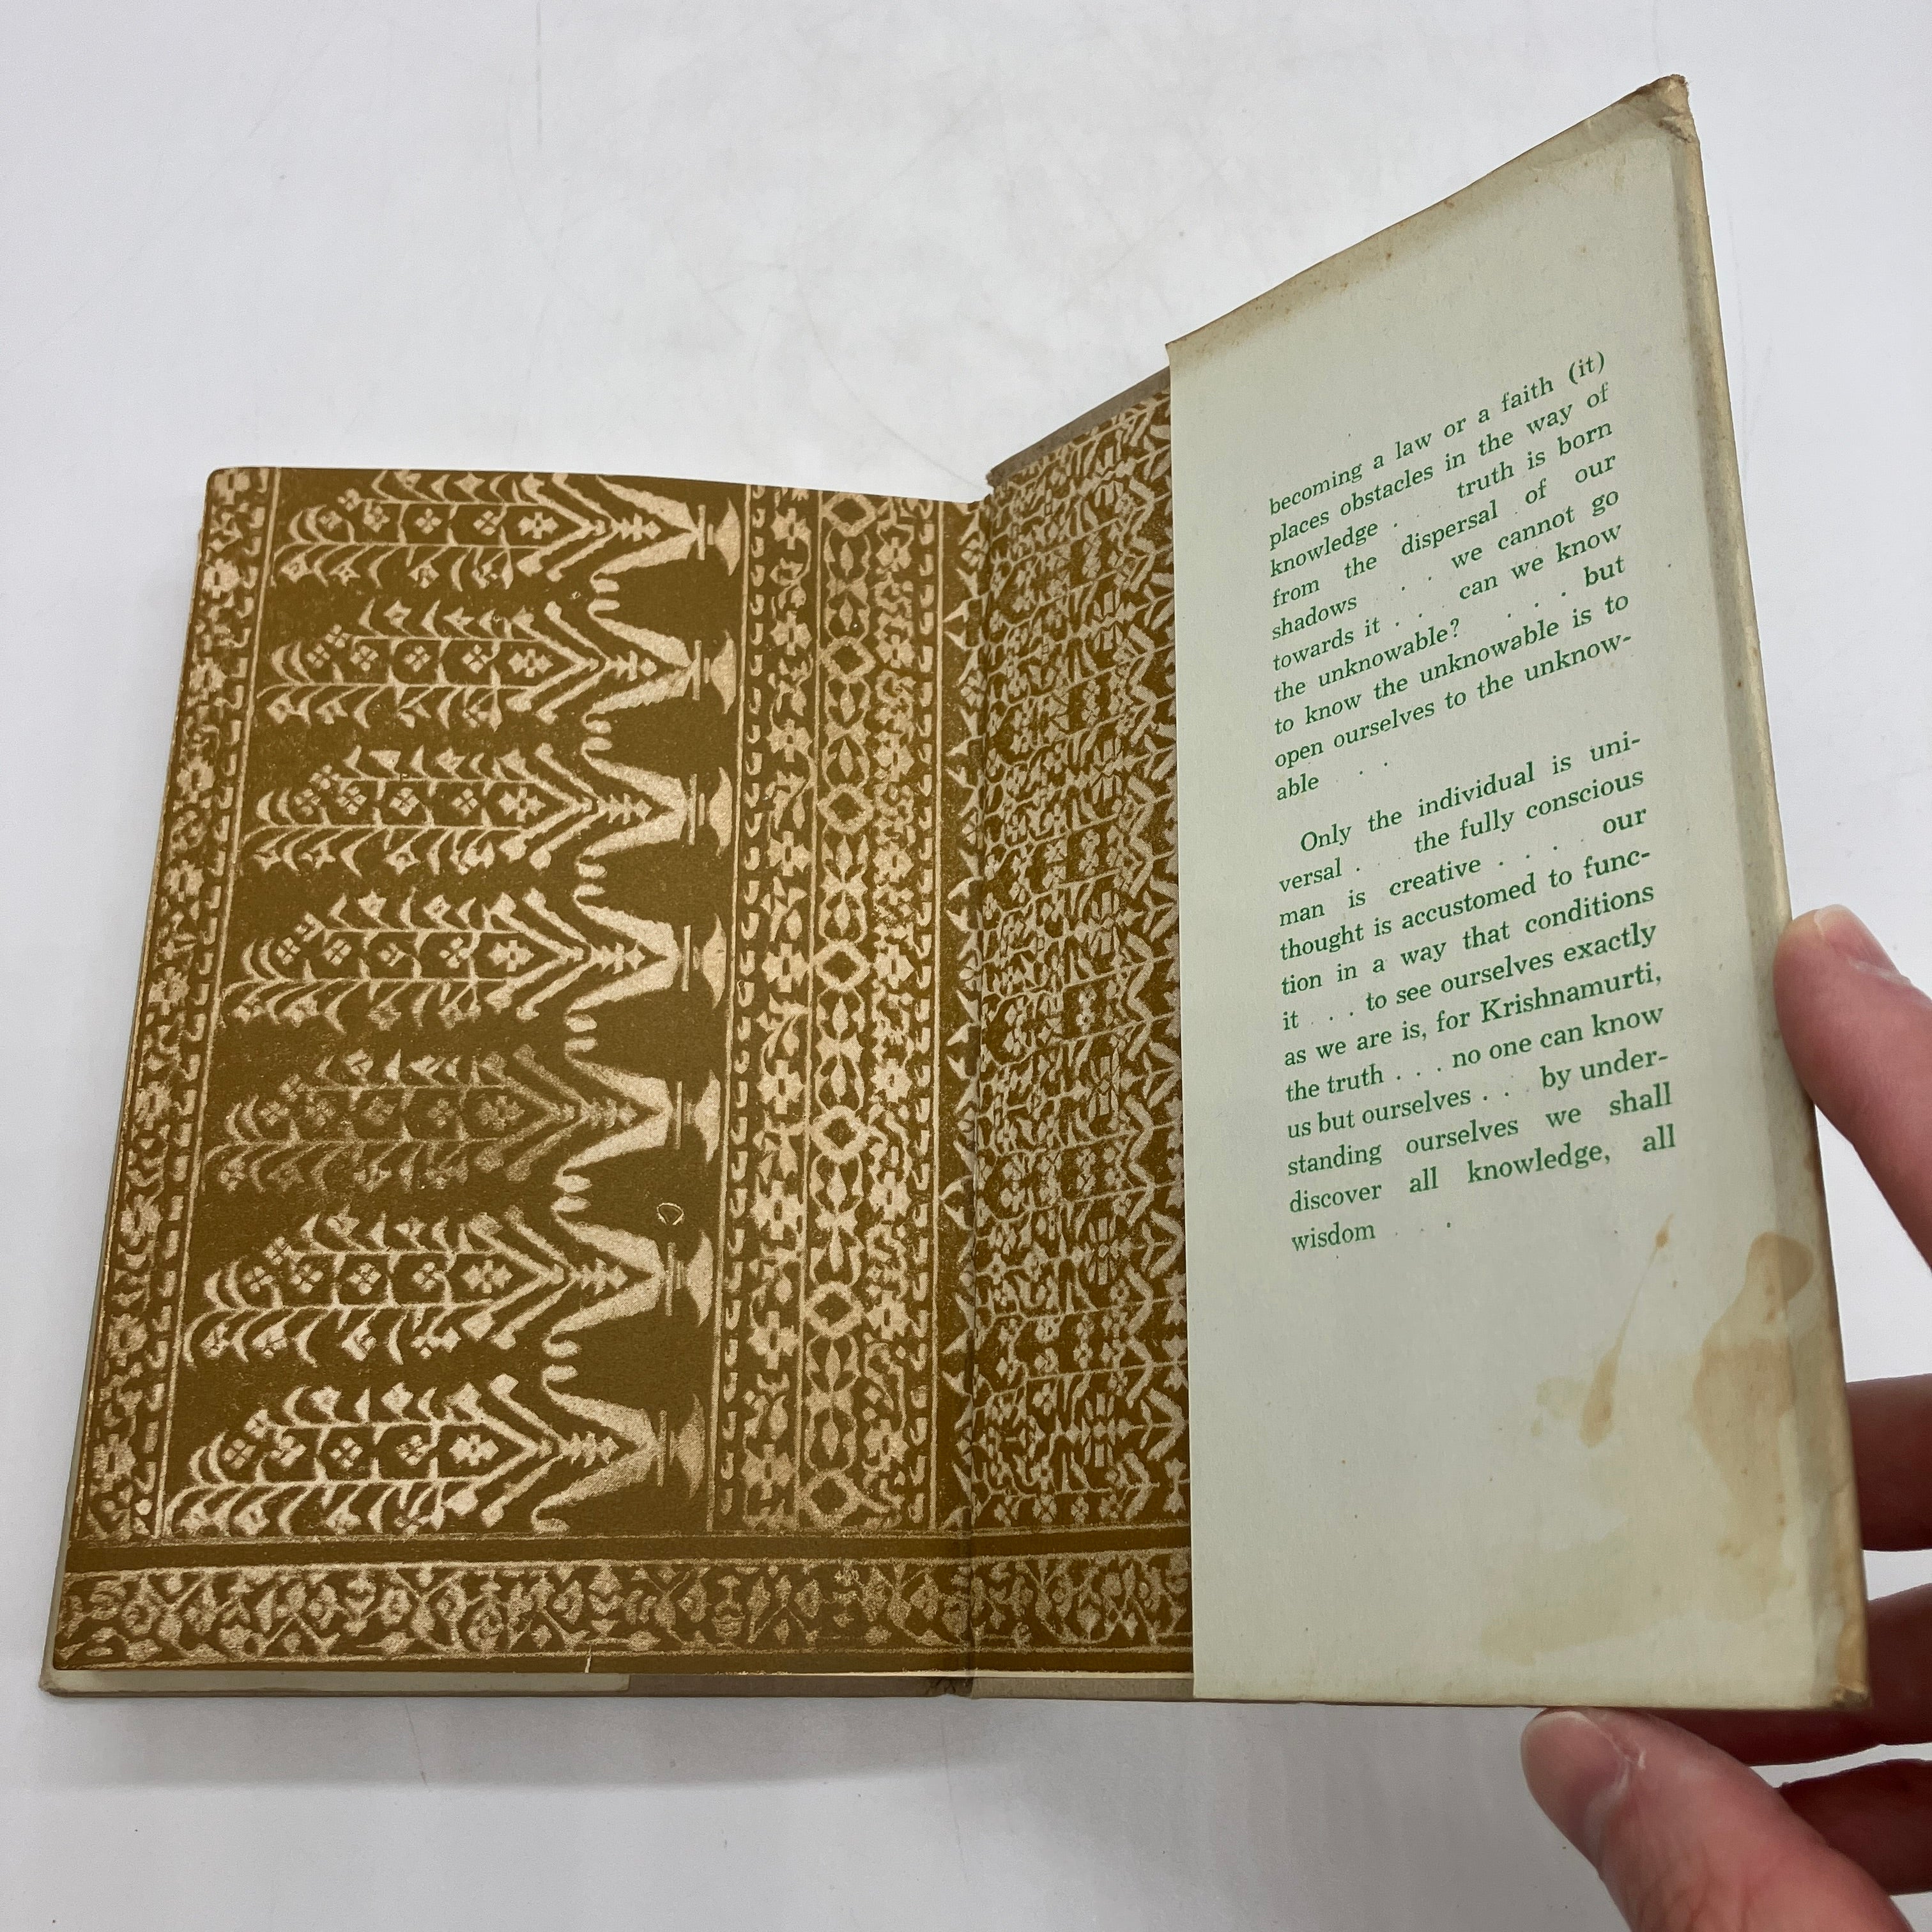 becoming a law or a faith (it)
places obstacles in the way of
knowledge . . . truth is born
from the dispersal of our
shadows . . we cannot go
towards it . . can we know
the unknowable? . . . but
to know the unknowable is to
open ourselves to the unknow-
able . . .
Only the individual is uni-
versal . . the fully conscious
man is creative . . . . our
thought is accustomed to func-
tion in a way that conditions
it . . . to see ourselves exactly
as we are is, for Krishnamurti,
the truth . . . no one can know
us but ourselves . . . by under-
standing ourselves we shall
discover all knowledge, all
wisdom . . .